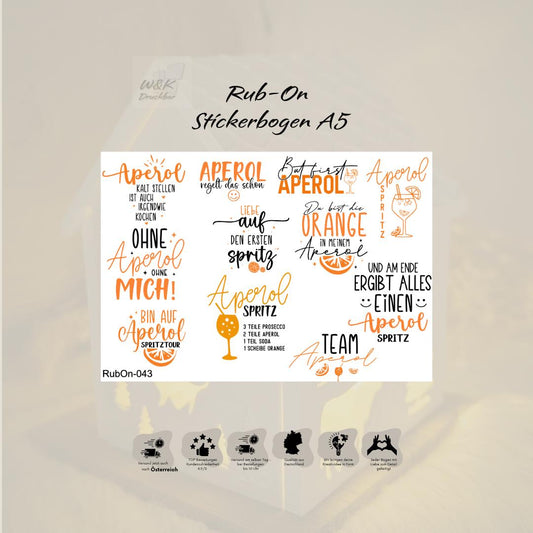 W&K
Druckbar
Rub-On
Stickerbogen A5
Aperol
KALT STELLEN
IST AUCH
IRGENDWIE
KOCHEN
APEROL
regelt das schon
But first
APEROL
Aperol
SPRITZ
LIEBE
auf
DEN ERSTEN
spritz
Du bist die
ORANGE
IN MEINEM
Aperol
OHNE
Aperol
OHNE
MICH!
UND AM ENDE
ERGIBT ALLES
EINEN
Aperol
SPRITZ
Aperol
SPRITZ
3 TEILE PROSECCO
2 TEILE APEROL
1 TEIL SODA
1 SCHEIBE ORANGE
BIN AUF
Aperol
SPRITZTOUR
TEAM
Aperol
RubOn-043
Versand jetzt auch
nach Österreich
TOP Bewertungen
Kundenzufriedenheit
Versand am selben Tag
bei Bestellungen
bis 10 Uhr
Qualität aus
Deutschland
Wir bringen deine
Kreativität in Form
Jeder Bogen mit
Liebe zum Detail
gefertigt